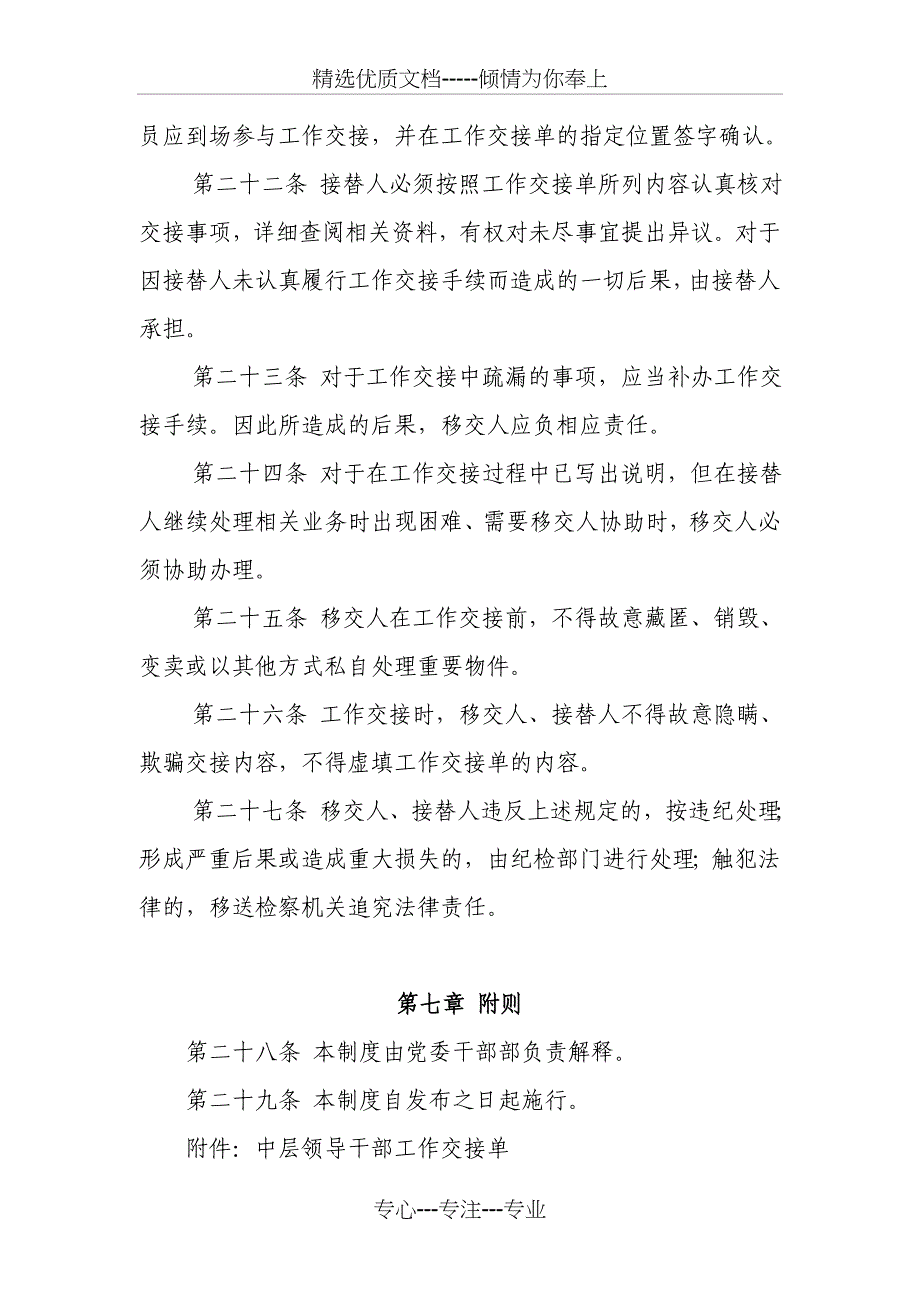 精选优质文档-----倾情为你奉上
员应到场参与工作交接，并在工作交接单的指定位置签字确认。
第二十二条 接替人必须按照工作交接单所列内容认真核对
交接事项，详细查阅相关资料，有权对未尽事宜提出异议。对于
因接替人未认真履行工作交接手续而造成的一切后果，由接替人
承担。
第二十三条 对于工作交接中疏漏的事项，应当补办工作交
接手续。因此所造成的后果，移交人应负相应责任。
第二十四条 对于在工作交接过程中已写出说明，但在接替
人继续处理相关业务时出现困难、需要移交人协助时，移交人必
须协助办理。
第二十五条 移交人在工作交接前，不得故意藏匿、销毁、
变卖或以其他方式私自处理重要物件。
第二十六条 工作交接时，移交人、接替人不得故意隐瞒、
欺骗交接内容，不得虚填工作交接单的内容。
第二十七条 移交人、接替人违反上述规定的，按违纪处理；
形成严重后果或造成重大损失的，由纪检部门进行处理；触犯法
律的，移送检察机关追究法律责任。
第七章 附则
第二十八条 本制度由党委干部部负责解释。
第二十九条 本制度自发布之日起施行。
附件：中层领导干部工作交接单
专心---专注---专业